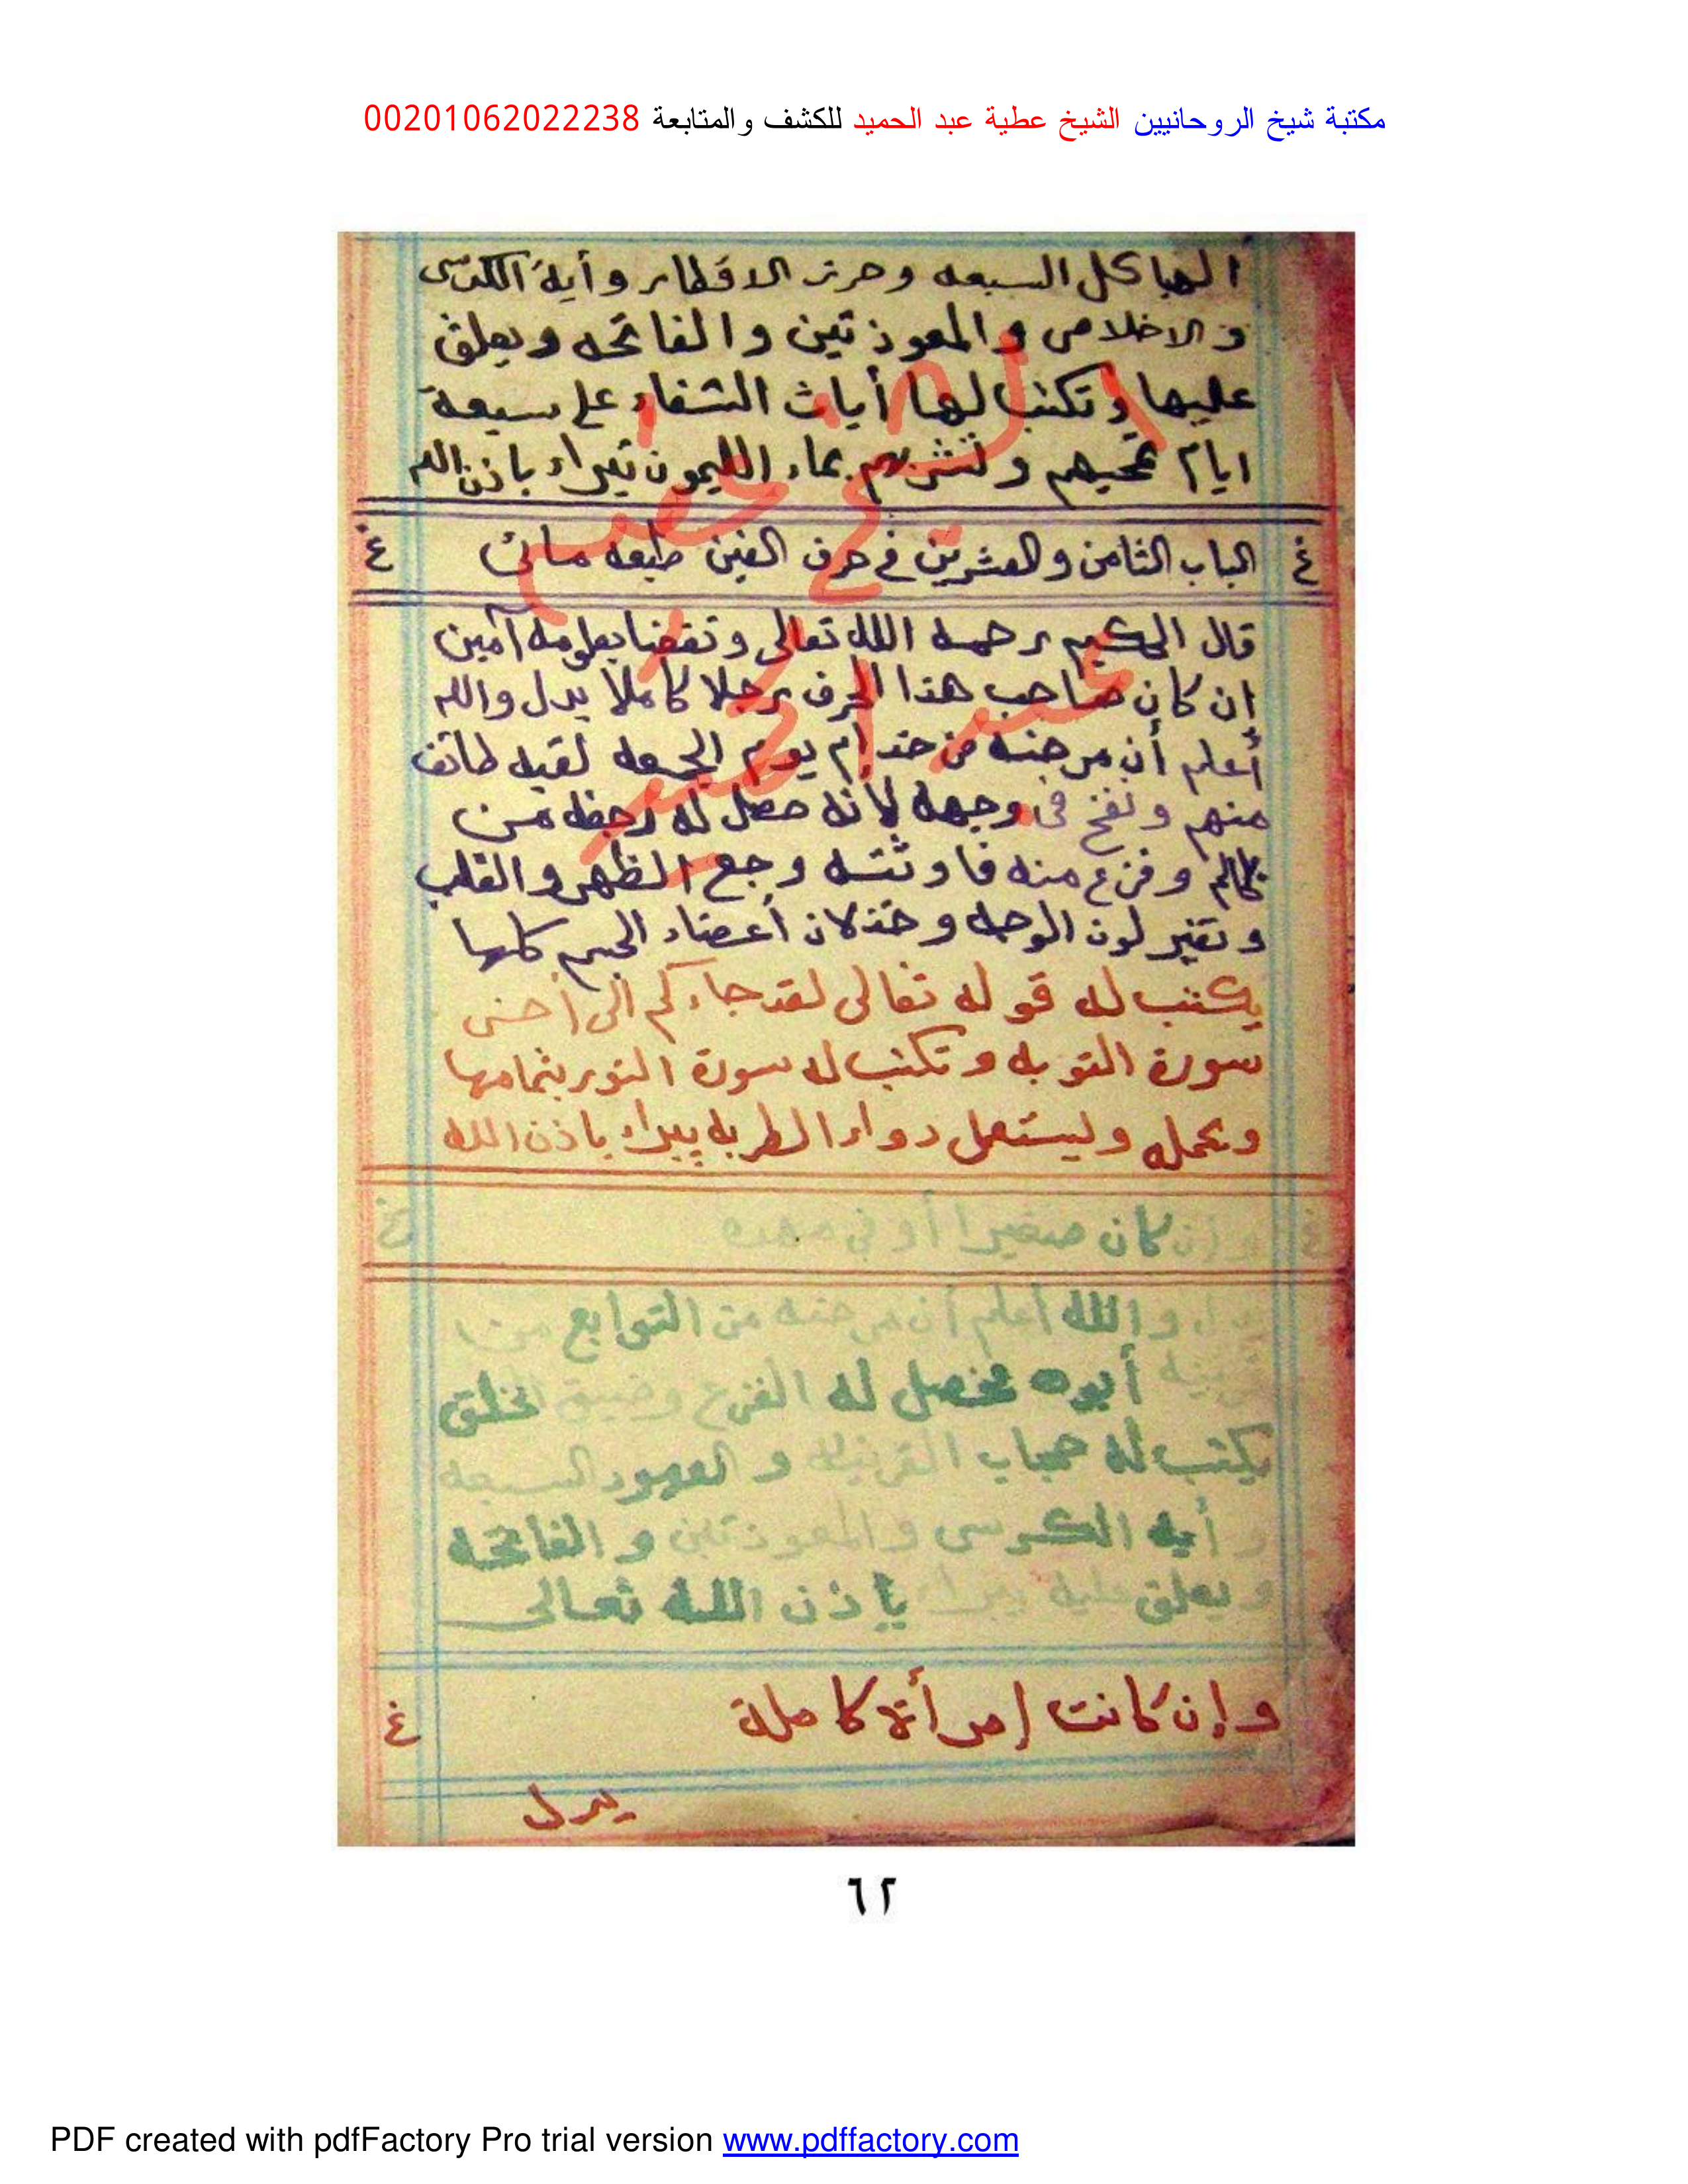 مكتبة شيخ الروحانيين الشيخ عطية عبد الحميد للكشف والمتابعة 00201062022238
الهياكل السبعه وحرز الاقطار وأية الكرسى
والاخلاص والمعوذتين والفاتحه ويعلق
عليها وتكتب لها أيات الشفاء على سبعة
ايام تمحيهم وتشربهم بماء الليمون تبراء باذن الله
غ الباب الثامن والعشرين في حرف الغين طبعه مائى غ
قال الحكيم رحمه الله تعالى ونفعنا بعلومه آمين
إن كان صاحب هذا الحرف رجلا كاملا يدل والله
أعلم أن مرضه من خدام يوم الجمعه لقيه طائف
منهم ونفخ فى وجهه لأنه حصل له رجفه من
ظالم وفزع منه فاورثته وجع الظهر والقلب
وتغير لون الوجه وخذلان أعضاء الجسم كلها
يكتب له قوله تعالى لقد جاءكم الى أخر
سورة التوبه وتكتب له سورة النور بتمامها
ويحمله وليستعمل دواء الطربه يبراء باذن الله
غ وإن كان صغيرا أو في مهده غ
يدل والله أعلم أن مرضه من التوابع من
قرينه أبوه يحصل له الفزع وضيق الخلق
يكتب له حجاب القرينه والعهود السبعه
وأيه الكرسى والمعوذتين والفاتحه
ويعلق عليه يبراء بإذن الله تعالى
وإن كانت إمرأة كاملة غ
يدل
الشيخ عطيه
عبد الحميد
٦٢
PDF created with pdfFactory Pro trial version www.pdffactory.com